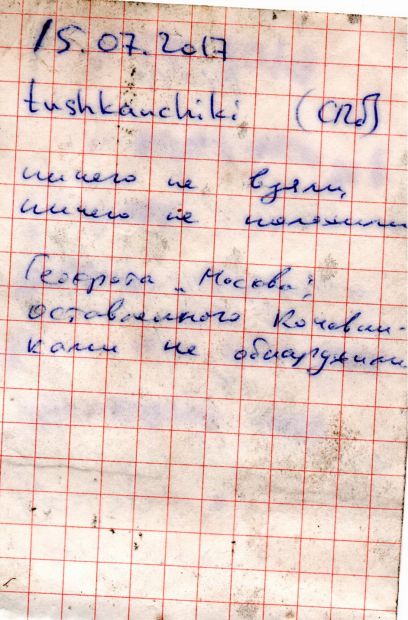 15.07.2017
tushkanchiki (СПб)
ничего не взяли,
ничего не положили
Геокрота „Москва",
оставленного Кочевни-
ками не обнаружили